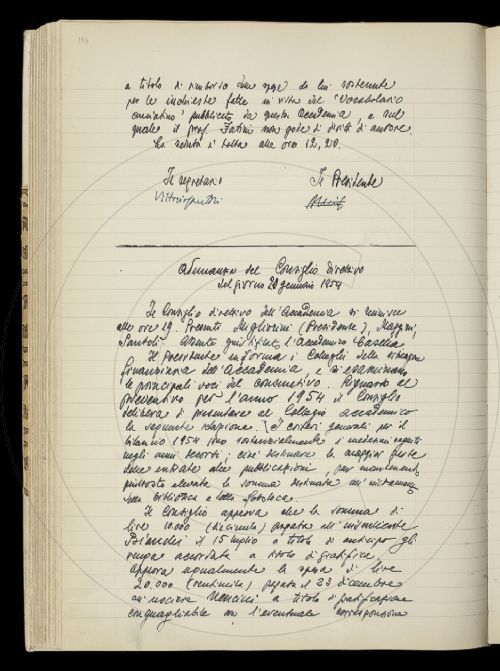 184
a titolo di rimborso delle spese da lui sostenute
per le inchieste fatte in vista del "Vocabolario
amiatino" pubblicato da questa Accademia, e sul
quale il prof. Fatini non gode di diritti di autore.
La seduta è tolta alle ore 12,20.
Il segretario Il Presidente
Adunanza del Consiglio direttivo
del giorno 28 gennaio 1954
Il Consiglio direttivo dell'Accademia si riunisce
alle ore 19. Presenti Migliorini (Presidente), Maggini,
Santoli. Assente giustificato l'accademico Casella
Il Presidente informa i Colleghi della situazione
finanziaria dell'Accademia, e si esaminano
le principali voci del consuntivo. Riguardo al
preventivo per l'anno 1954 il Consiglio
delibera di presentare al Collegio accademico
la seguente relazione. I criteri generali per il
bilancio 1954 sono sostanzialmente i medesimi seguiti
negli anni scorsi; cioè destinare la maggior parte
delle entrate alle pubblicazioni, pur mantenendo
piuttosto elevata la somma destinata all'incremento
della biblioteca e della fototeca.
Il Consiglio approva che la somma di
lire 10.000 (diecimila) pagata all'inserviente
Bianchi il 15 luglio a titolo di anticipo gli
venga accordata a titolo di gratifica,
approva ugualmente la spesa di lire
20.000 (ventimila) pagata il 23 dicembre
all'usciere Vencini a titolo di gratificazione
conguagliabile con l'eventuale corresponsione